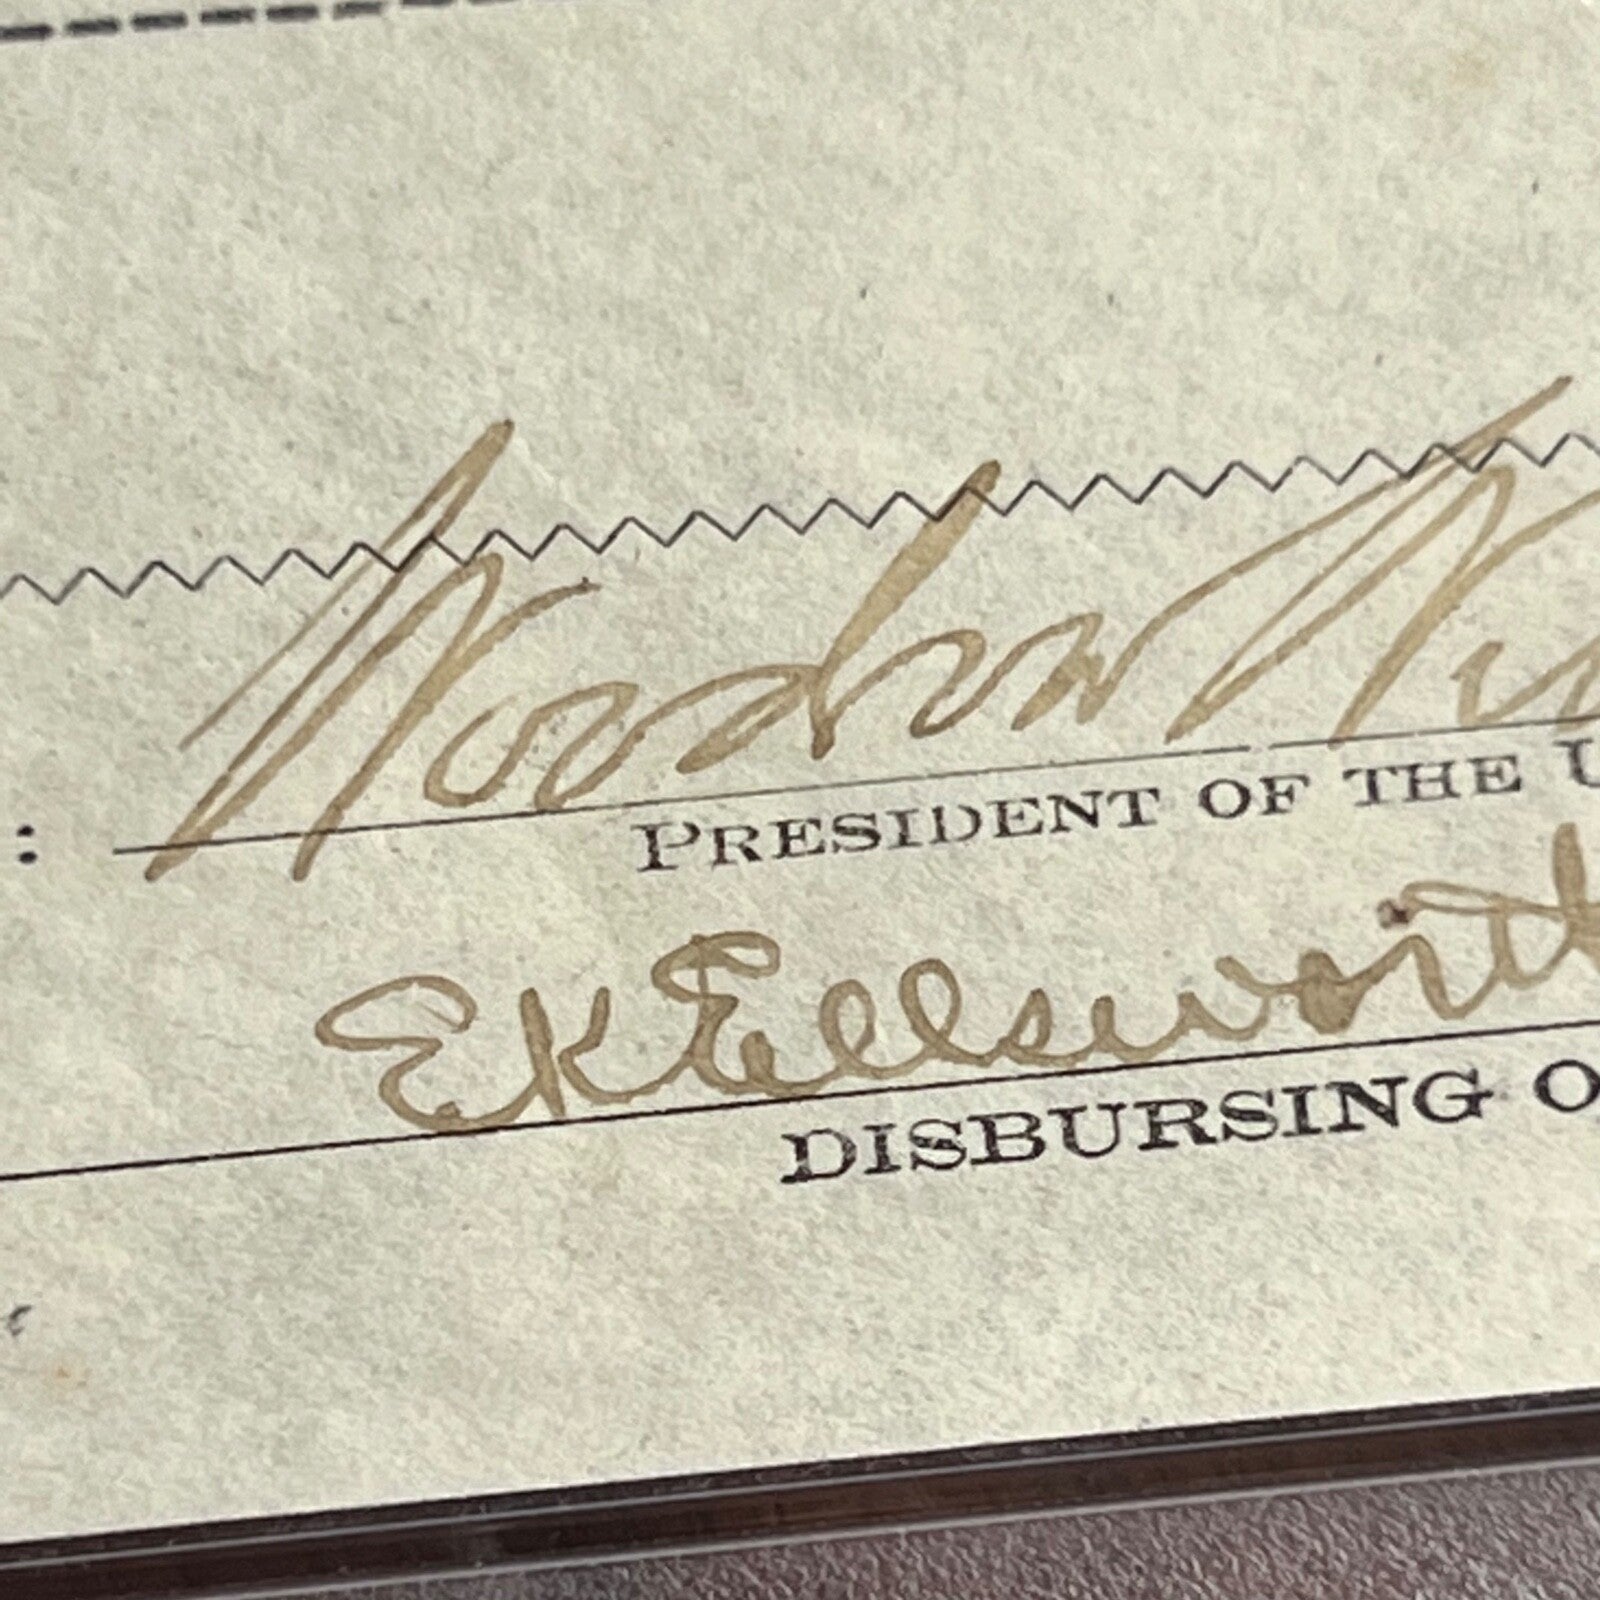 Woodrow Wi
: PRESIDENT OF THE U
E K Ellsworth
DISBURSING O